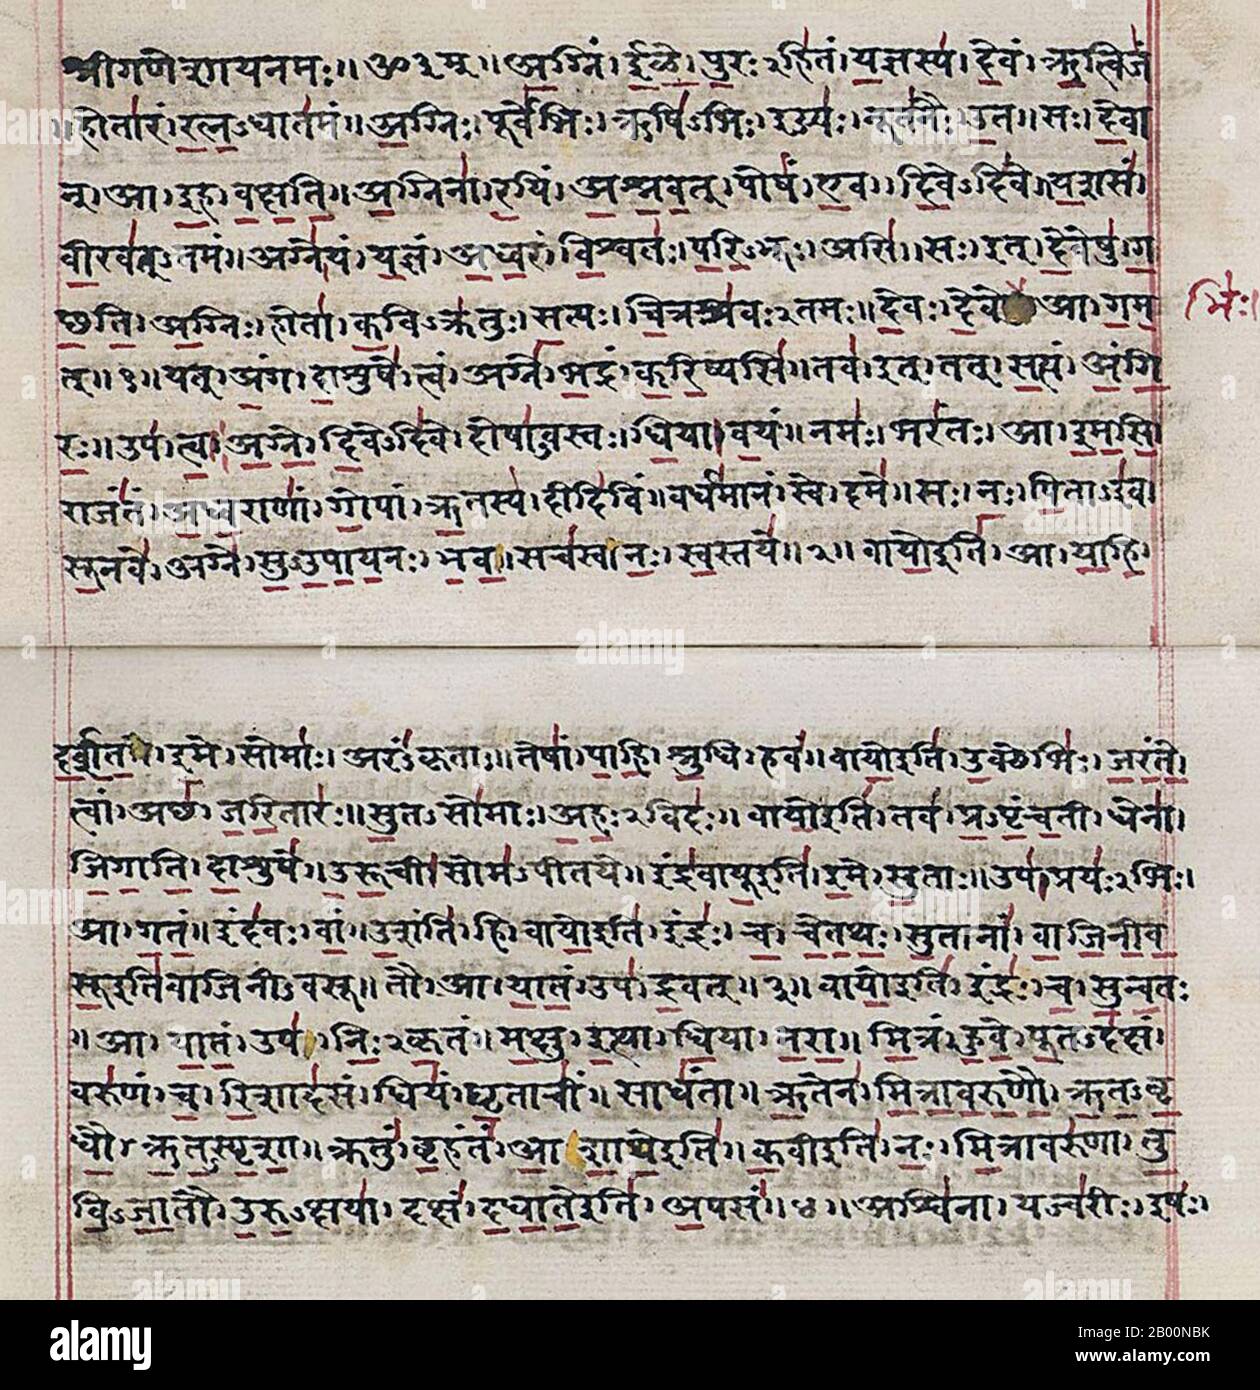 श्रीगणेशायनमः॥ ॐ३म्॥ अ॒ग्निं। ई॒ळे॒। पु॒रःऽहि॑तं। य॒ज्ञस्य॑। दे॒वं। ऋ॒त्विजं॑
॥होता॑रं। र॒त्न॒ऽधात॑मं॥ अ॒ग्निः। पूर्वे॑भिः। ऋषि॑ऽभिः। ईड्यः॑। नूत॑नैः। उ॒त॥ सः। दे॒वा
न्। आ। इ॒ह। व॒क्ष॒ति॒॥ अ॒ग्निना॑। र॒यिं। अ॒श्न॒व॒त्। पोषं॑। ए॒व। दि॒वेऽदि॑वे॥ य॒शसं॑।
वी॒रव॑त्ऽतमं॥ अग्ने॑। यं। य॒ज्ञं। अ॒ध्व॒रं। वि॒श्वतः॑। प॒रि॒ऽभूः। असि॑॥ सः। इत्। दे॒वेषु॑। ग॒
च्छ॒ति॒। अ॒ग्निः। होता॑। क॒विऽक्र॑तुः। स॒त्यः। चि॒त्रश्र॑वःऽतमः॥ दे॒वः। दे॒वे आ। ग॒म॒
भिः॑।
त्॥ १॥ यत्। अं॒ग। दा॒शुषे॑। त्वं। अग्ने॑। भ॒द्रं। क॒रि॒ष्यसि॑॥ तव॑। इत्। तत्। स॒त्यं। अं॒गि॒
रः॒॥ उप॑। त्वा॒। अ॒ग्ने॒। दि॒वेऽदि॑वे। दोषा॑ऽवस्तः। धि॒या। व॒यं॥ नमः॑। भरं॑तः। आ। इ॒म॒सि॒।
राजं॑तं। अ॒ध्व॒राणां॑। गो॒पां। ऋ॒तस्य॑। दीदि॑विं॥ वर्ध॑मानं। स्वे। दमे॑॥ सः। नः॒। पि॒ताऽइ॑व।
सू॒नवे॑। अग्ने॑। सु॒ऽउ॒पा॒य॒नः। भ॒व॒॥ सच॑स्व। नः॒। स्व॒स्तये॑॥ २॥ वायो॒इति॑। आ। या॒हि॒।
द॒र्श॒त॒। इ॒मे। सोमाः॑। अरं॑ऽकृताः॥ तेषां॑। पा॒हि॒। श्रु॒धि। हवं॑॥ वायो॒इति॑। उ॒क्थेभिः॑। ज॒रं॒ते॒।
त्वां। अच्छ॑। ज॒रि॒तारः॑॥ सु॒तऽसो॑माः। अ॒हः॒ऽविदः॑॥ वायो॒इति॑। तव॑। प्र॒ऽपृं॒च॒ती। धेना॑।
जि॒गा॒ति॒। दा॒शुषे॑॥ उ॒रू॒ची। सोम॑ऽपीतये॥ इंद्र॑वायू॒इति॑। इ॒मे। सु॒ताः॥ उप॑। प्रयः॑ऽभिः।
आ। ग॒तं॒॥ इंद॑वः। वां॒। उ॒शंति॑। हि॥ वायो॒इति॑। इंद्रः॑। च॒। चे॒त॒थः॒। सु॒तानां॑। वा॒जि॒नी॒व॒
सू॒इति॑वाजिनीऽवसू॥ तौ। आ। या॒तं॒। उप॑। द्र॒वत्॥ ३॥ वायो॒इति॑। इंद्रः॑। च॒। सु॒न्व॒तः
॥ आ। या॒तं॒। उप॑। निः॒ऽकृ॒तं॥ म॒क्षु। इ॒त्था। धि॒या। न॒रा॒॥ मि॒त्रं। हु॒वे॒। पू॒तऽद॑क्षं।
वरु॑णं। च॒। रि॒शाद॑सं। धियं॑। घृ॒ताचीं॑। साधं॑ता॥ ऋ॒तेन॑। मि॒त्रा॒व॒रु॒णौ॒। ऋ॒त॒ऽवृ॒
धौ॒। ऋ॒त॒स्पृ॒शा॒॥ क्रतुं॑। बृ॒हंतं॑। आ॒शा॒थे॒इति॑॥ क॒वीइति॑। नः॒। मि॒त्रावरु॑णा। तु॒
वि॒ऽजा॒तौ। उ॒रु॒ऽक्षया॑। दक्षं॑। द॒धा॒ते॒इति॑। अ॒पसं॑॥ ४॥ अश्वि॑ना। यज्व॑रीः। इषः॑।
alamy
Image ID: 2B00NBK
www.alamy.com